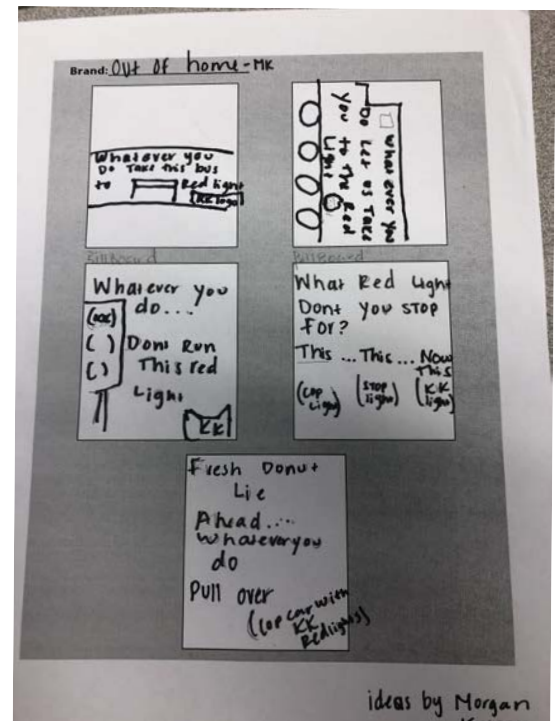 Brand: Out of home-MK
Whatever you
Do Take this bus
to Red light
KK logo
What ever you
Do Let us Take
You to The Red
Light
Billboard
Billboard
What ever you
do...
Dont Run
This red
Light
KK
What Red Light
Dont You STOP
For?
This ... This ... Now
This
(cop light) (stop light) (KK light)
Fresh Donut
Lie
Ahead....
whateveryou
do
Pull over
(cop car with
KK
Redlights)
ideas by Morgan